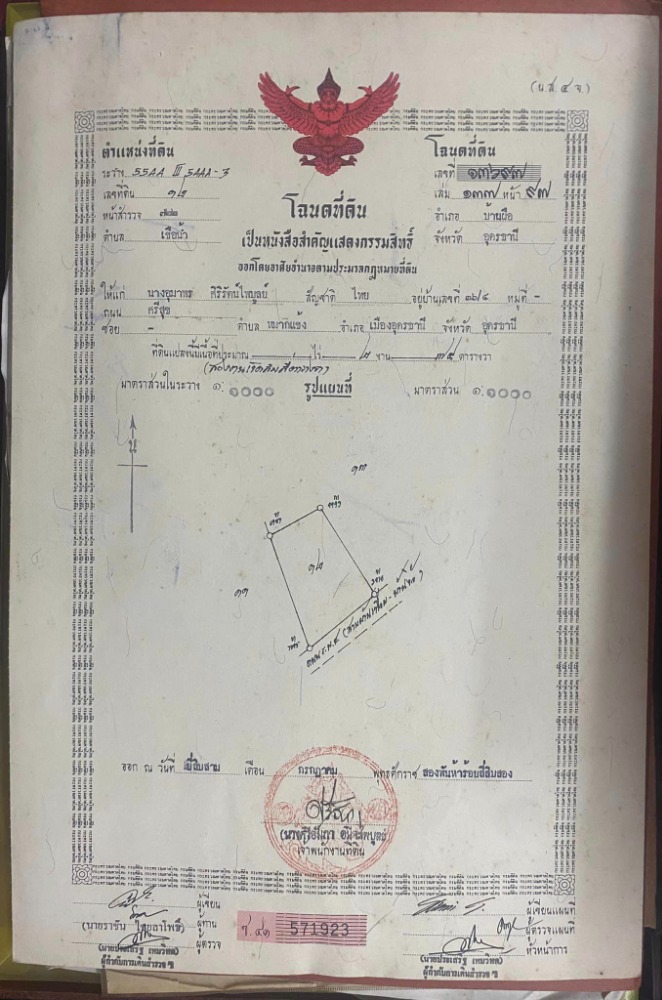 (น.ส. ๔ จ.)
ตำแหน่งที่ดิน
ระวาง 55AA III 5AAA-3
เลขที่ดิน ๑๘
หน้าสำรวจ
ตำบล เขือน้ำ
โฉนดที่ดิน
เลขที่ ๑๓๖๙๗
เล่ม ๑๓๗ หน้า ๙๗
อำเภอ บ้านผือ
จังหวัด อุดรธานี
โฉนดที่ดิน
เป็นหนังสือสำคัญแสดงกรรมสิทธิ์
ออกโดยอาศัยอำนาจตามประมวลกฎหมายที่ดิน
ให้แก่ นางอุมาพร ศิริรัตน์ไพบูลย์ สัญชาติ ไทย อยู่บ้านเลขที่ ๓๖/๔ หมู่ที่ -
ถนน ศรีสุข
ซอย - ตำบล หมากแข้ง อำเภอ เมืองอุดรธานี จังหวัด อุดรธานี
ที่ดินแปลงนี้มีเนื้อที่ประมาณ - ไร่ ๒ งาน ตารางวา
มาตราส่วนในระวาง ๑: ๑๐๐๐ รูปแผนที่ มาตราส่วน ๑: ๑๐๐๐
น
๑๓
๑๘
๑๑
ออก ณ วันที่ ยี่สิบสาม เดือน กรกฎาคม พุทธศักราช สองพันห้าร้อยสี่สิบสอง
เจ้าพนักงานที่ดิน
ผู้เขียน
ผู้ทาน
ผู้ตรวจ
571923
ผู้เขียนแผนที่
ผู้ตรวจแผนที่
หัวหน้าการ
ผู้กำกับการเดินสำรวจ ฯ
ผู้กำกับการเดินสำรวจ ฯ